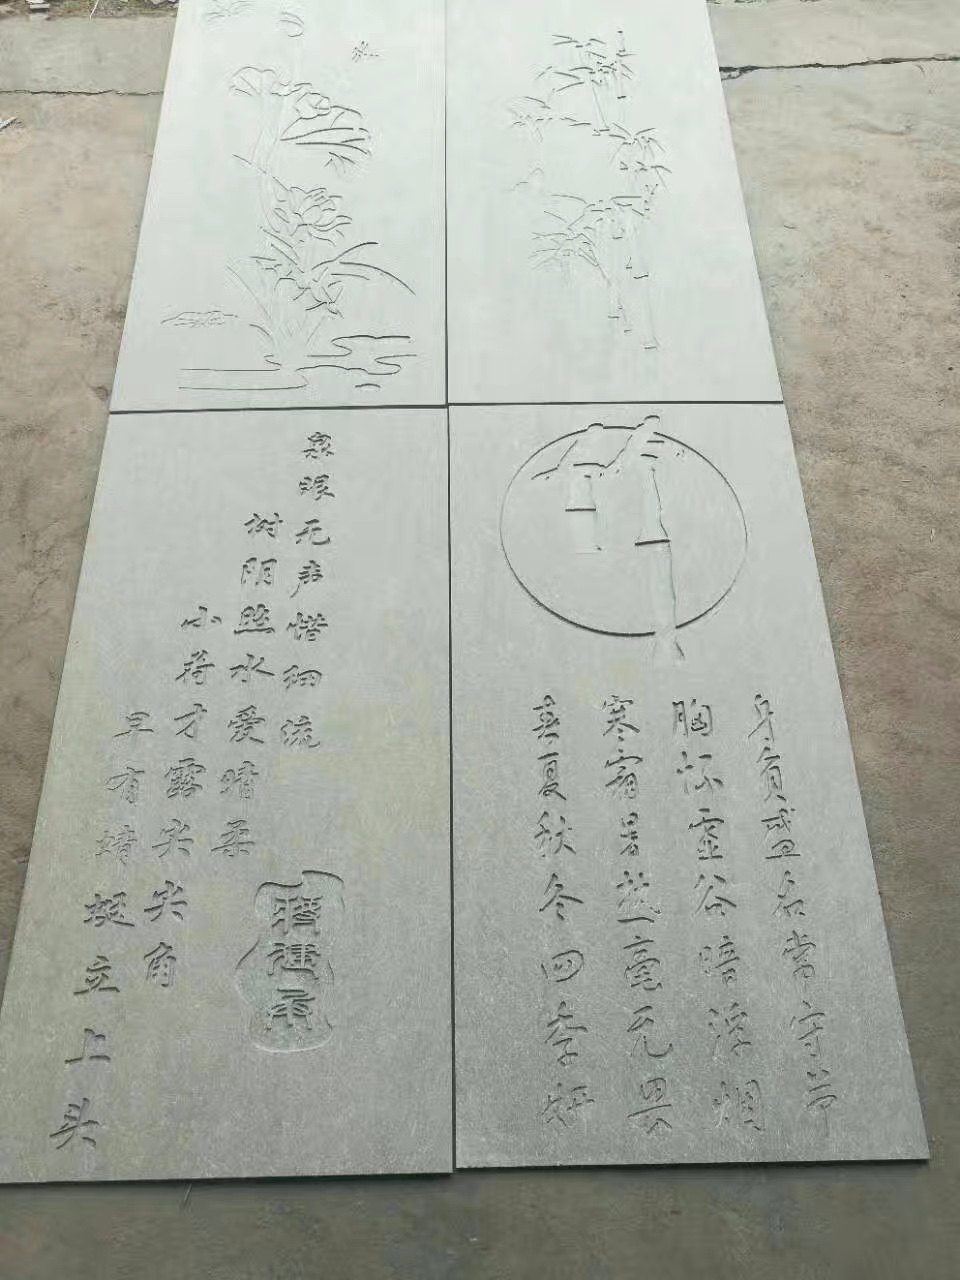 身负盛名常守节
胸怀虚谷暗浮烟
寒宵暑热毫无畏
春夏秋冬四季妍
泉眼无声惜细流
树阴照水爱晴柔
小荷才露尖尖角
早有蜻蜓立上头